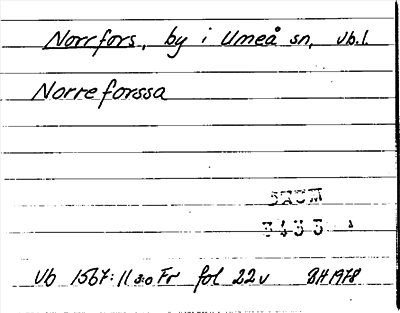 Norrfors, by i Umeå sn, Vb.l.
Norreforssa
DAUM
3433
Vb 1567:11 a:o Fr fol 22v BH 1978